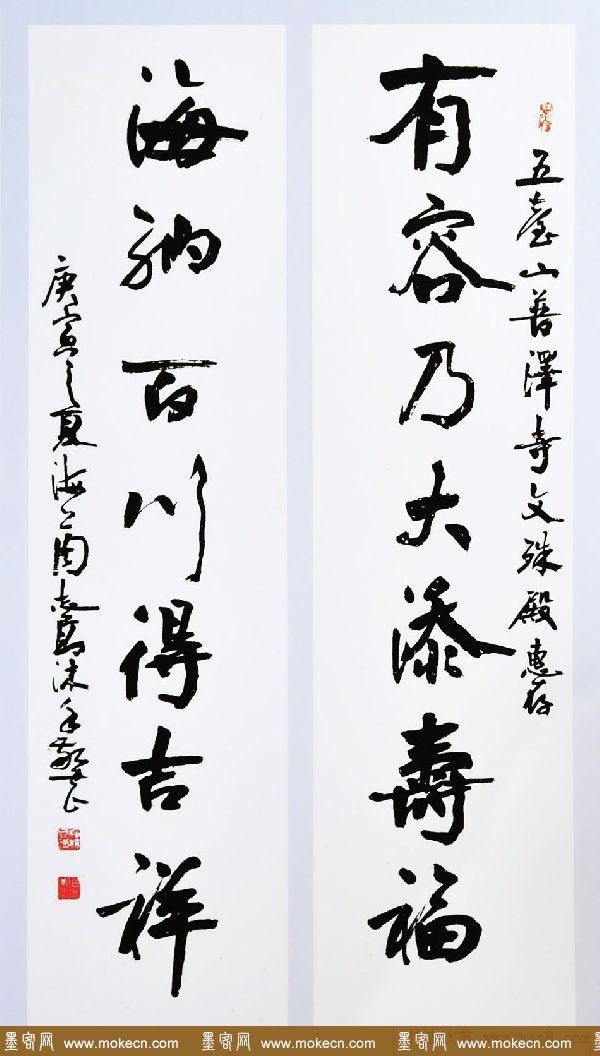 五臺山普澤寺文殊殿惠存
有容乃大添壽福
海納百川得吉祥
庚寅之夏海上陶為浤沐手敬書
墨客网 www.mokecn.com 墨客网 www.mokecn.com 墨客网 www.mokecn.com